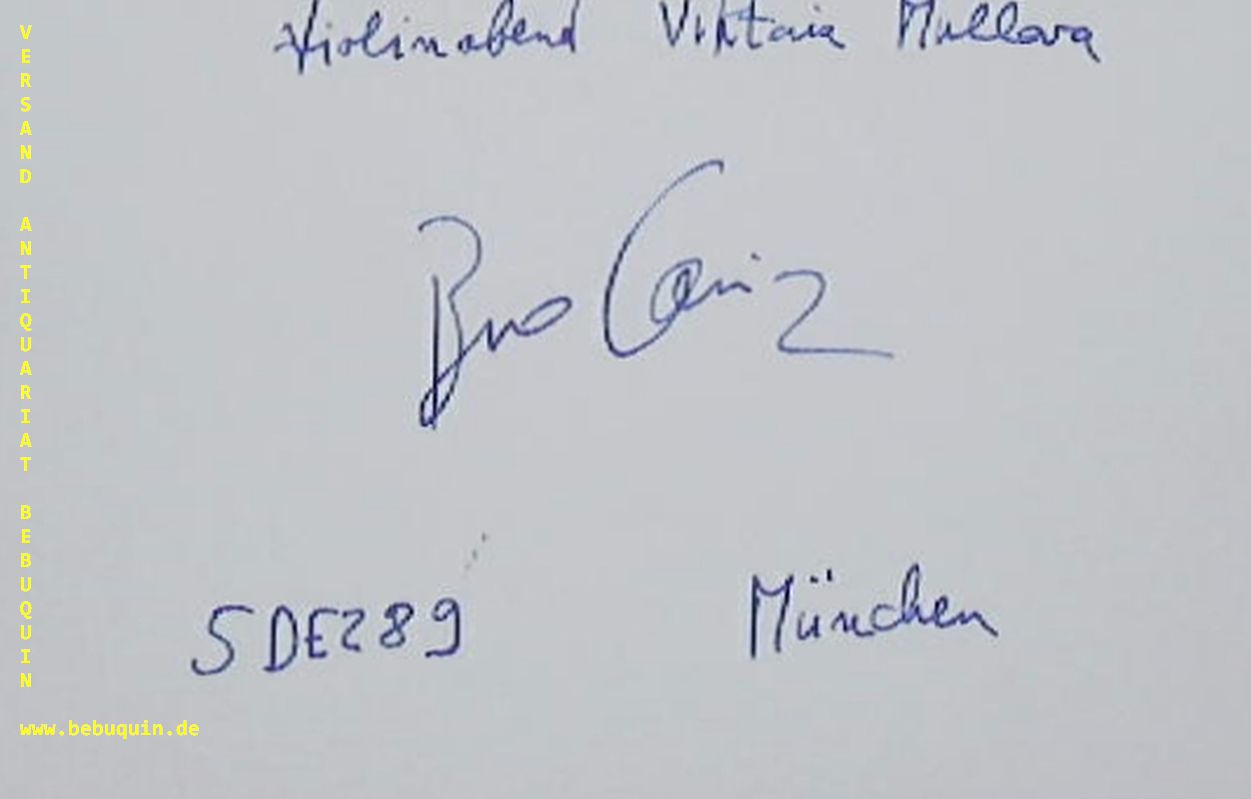 Violinabend Viktoria Mullova
Bruno Canino
5 DEZ 89 München
VERSAND ANTIQUARIAT BEBUQUIN
www.bebuquin.de